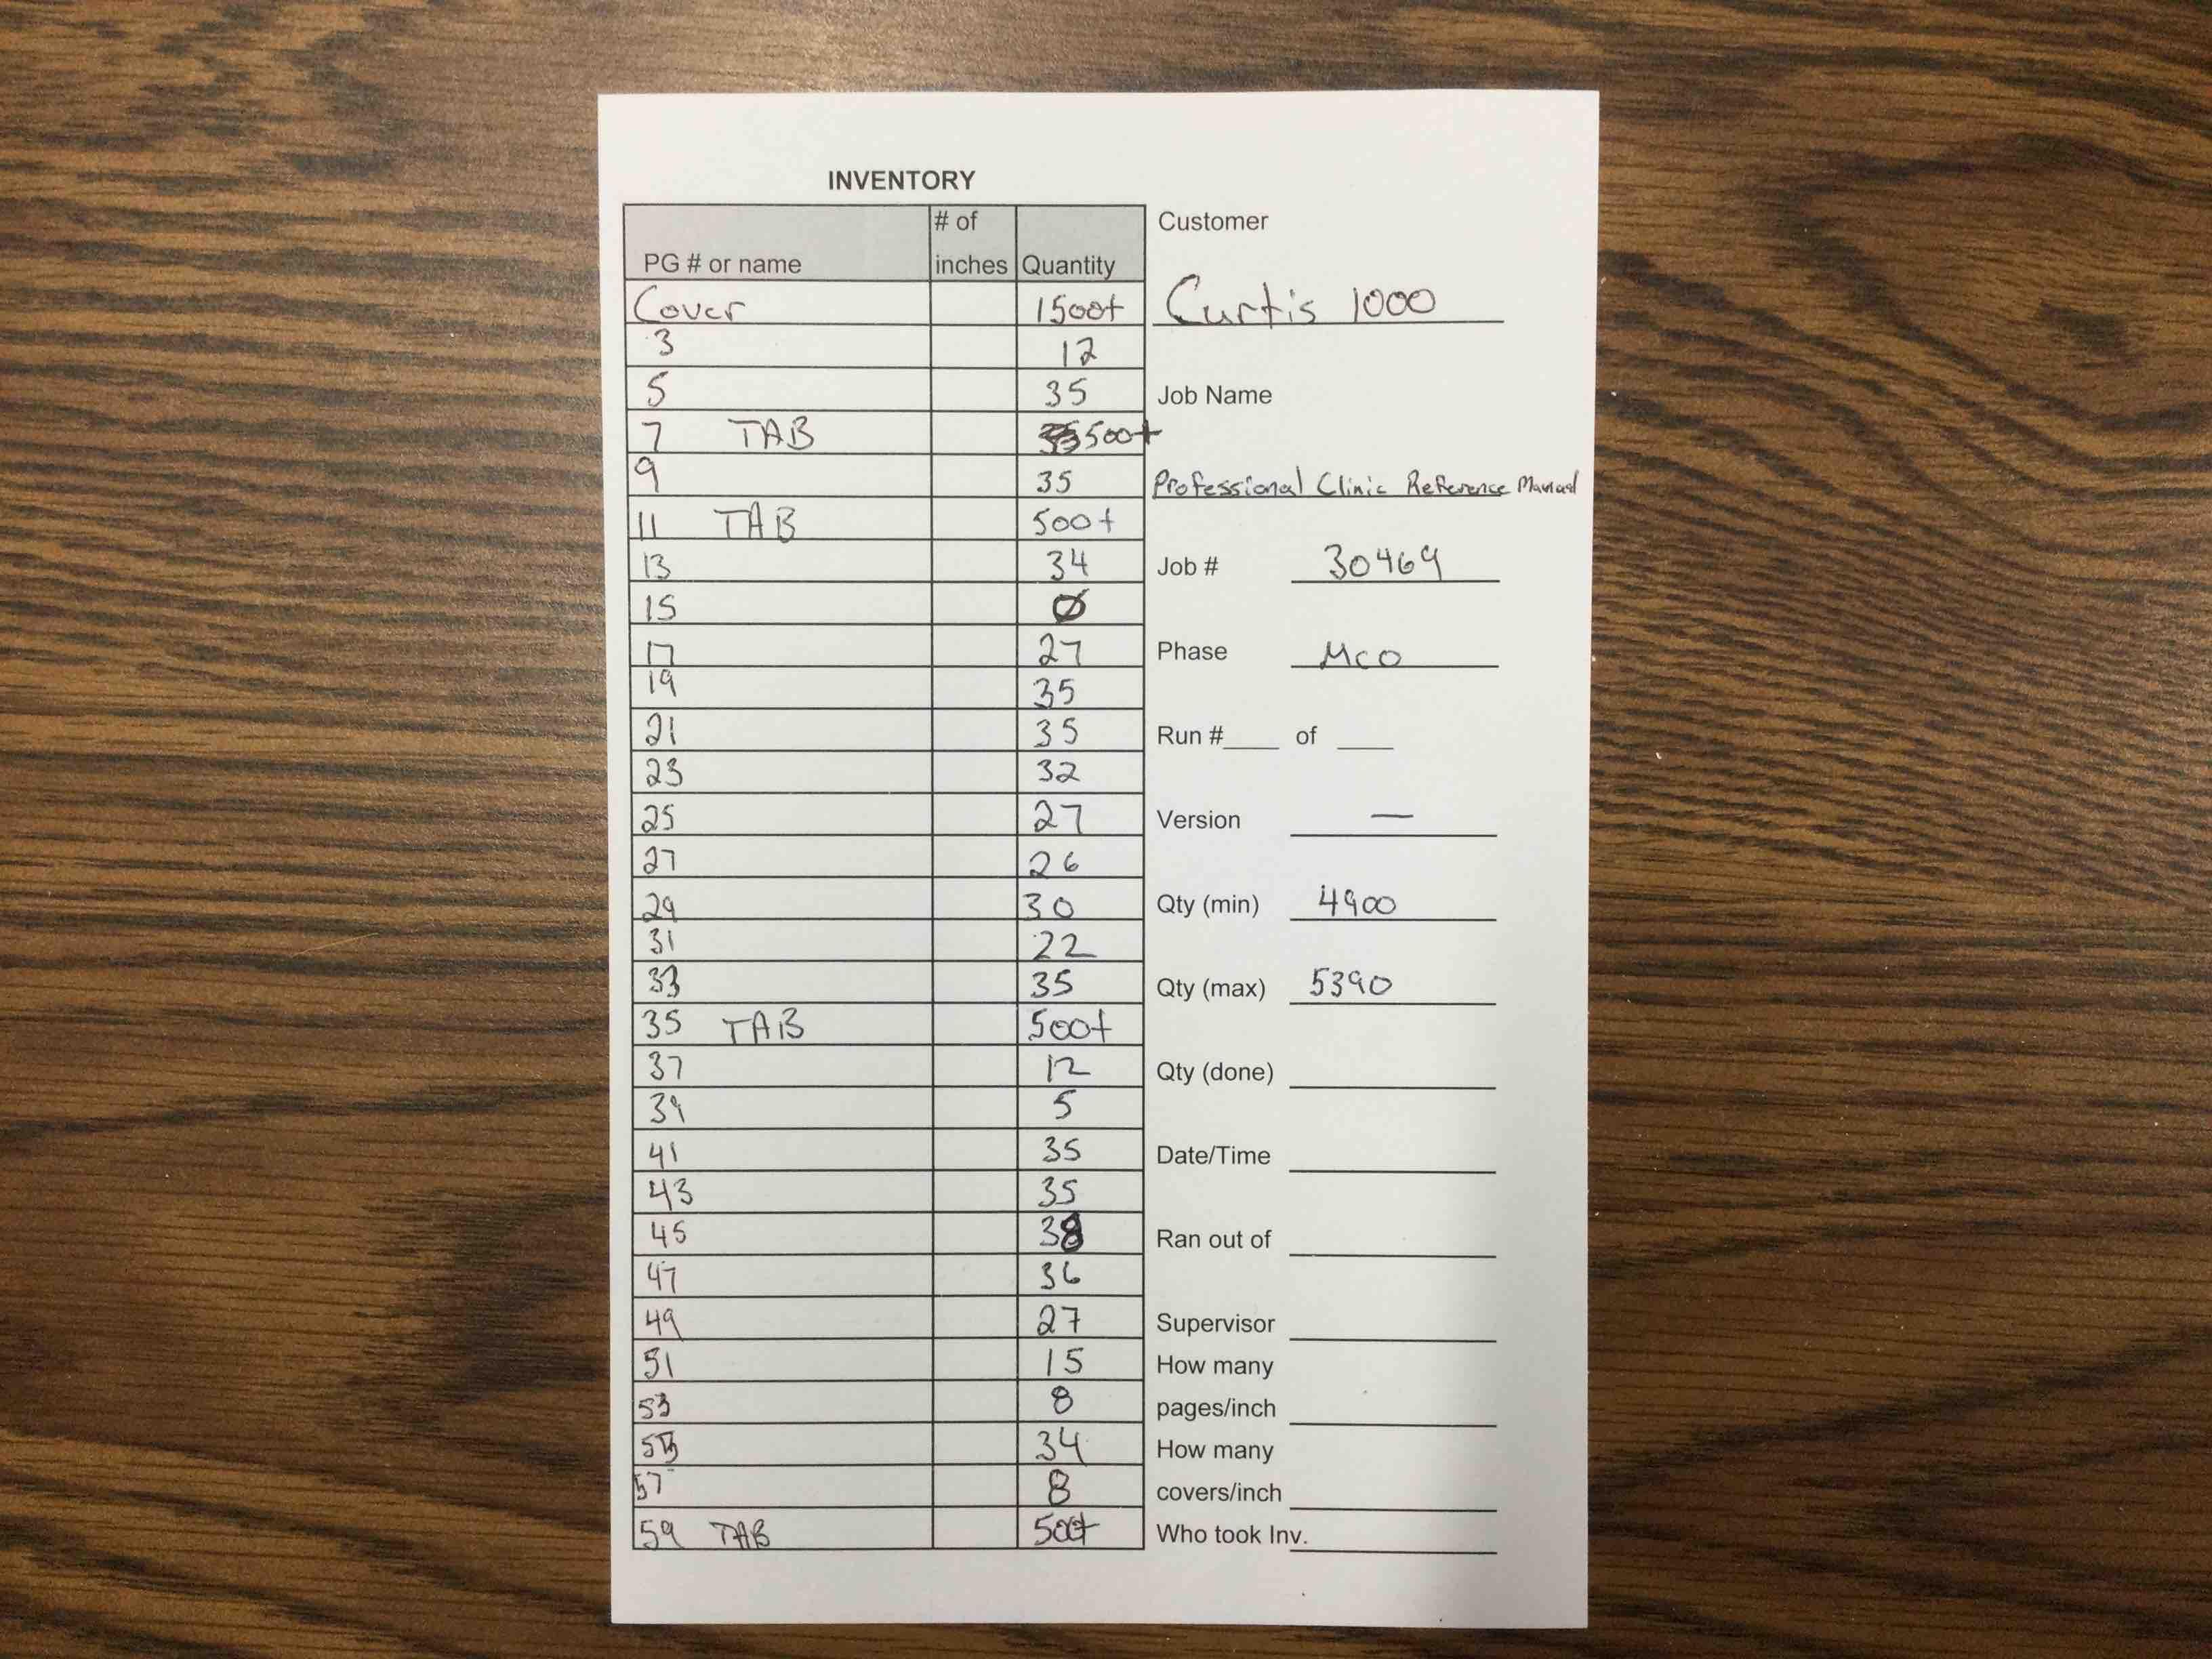 INVENTORY
PG # or name # of inches Quantity
Cover 1500+
3 12
5 35
7 TAB 500+
9 35
11 TAB 500+
13 34
15 Ø
17 27
19 35
21 35
23 32
25 27
27 26
29 30
31 22
33 35
35 TAB 500+
37 12
39 5
41 35
43 35
45 38
47 36
49 27
51 15
53 8
55 34
57 8
59 TAB 500+
Customer
Curtis 1000
Job Name
Professional Clinic Reference Manual
Job # 30469
Phase MCO
Run #____ of ____
Version —
Qty (min) 4900
Qty (max) 5390
Qty (done)
Date/Time
Ran out of
Supervisor
How many
pages/inch
How many
covers/inch
Who took Inv.